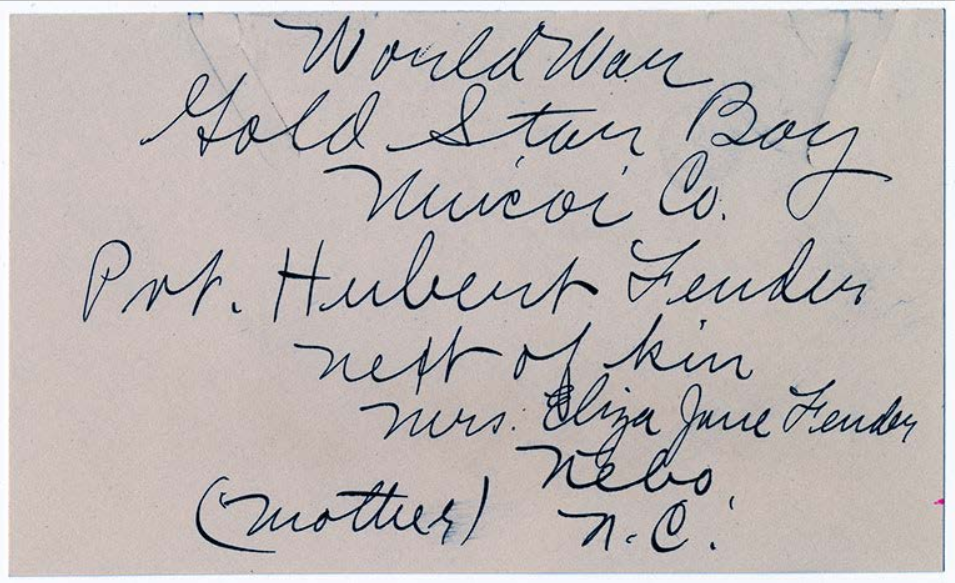 World War
Gold Star Boy
Unicoi Co.
Pvt. Hubert Fender
next of kin
Mrs. Eliza Jane Fender
Nebo,
(mother) N.C.